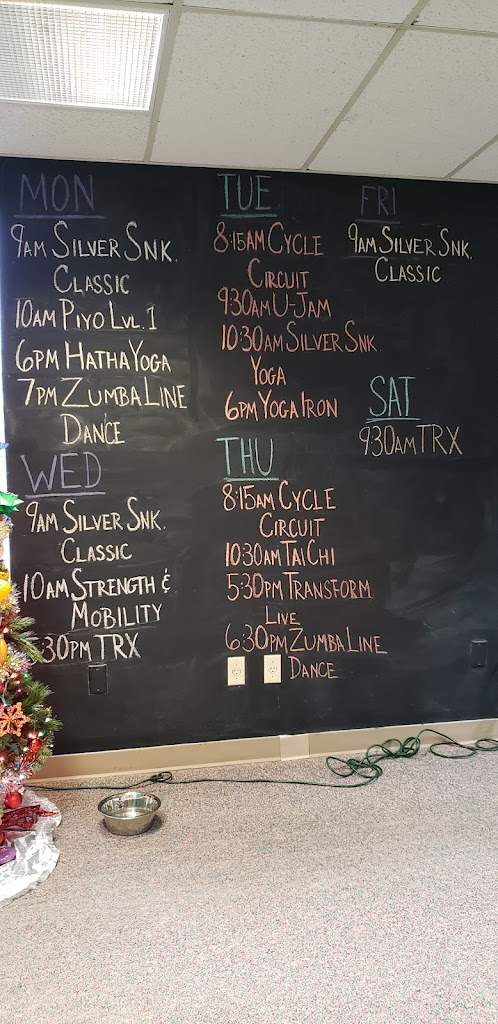 MON
9AM SILVER SNK.
CLASSIC
10AM PIYO LVL. 1
6PM HATHA YOGA
7PM ZUMBA LINE
DANCE
WED
9AM SILVER SNK.
CLASSIC
10AM STRENGTH &
MOBILITY
:30PM TRX
TUE
8:15AM CYCLE
CIRCUIT
930AM U-JAM
10:30AM SILVER SNK.
YOGA
6PM YOGA IRON
THU
8:15AM CYCLE
CIRCUIT
10:30AM TAI CHI
5:30PM TRANSFORM
LIVE
6:30PM ZUMBA LINE
DANCE
FRI
9AM SILVER SNK.
CLASSIC
SAT
9:30AM TRX